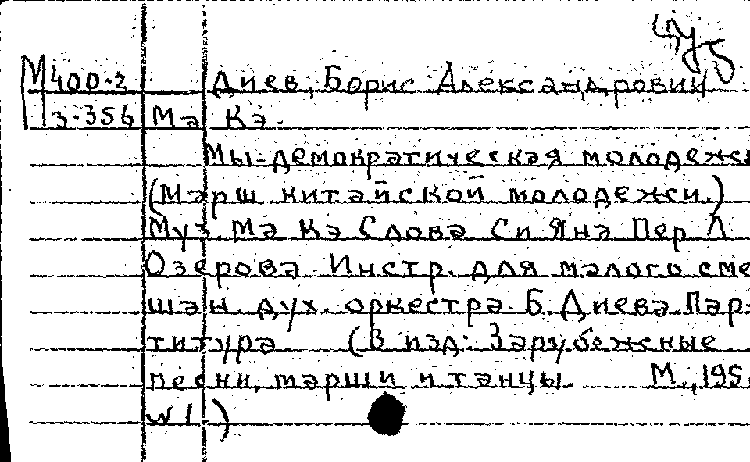 М400-2 Диев, Борис Александрович
3-356 Мa Кэ.
Мы-демократическая молодежь
(Марш китайской молодежи.)
Муз. Ма Кэ Слова Си Яна Пер Л
Озерова Инстр. для малого сме
шан. дух. оркестра Б. Диева Пар-
титура (В изд: Зарубежные
песни, марши и танцы М., 195
№1)